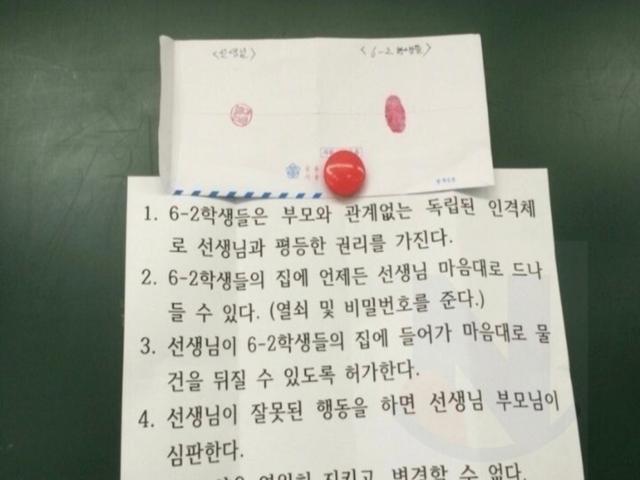 <선생님> <6-2 학생들>
1. 6-2학생들은 부모와 관계없는 독립된 인격체
로 선생님과 평등한 권리를 가진다.
2. 6-2학생들의 집에 언제든 선생님 마음대로 드나
들 수 있다. (열쇠 및 비밀번호를 준다.)
3. 선생님이 6-2학생들의 집에 들어가 마음대로 물
건을 뒤질 수 있도록 허가한다.
4. 선생님이 잘못된 행동을 하면 선생님 부모님이
심판한다.
영원히 지키고 변경할 수 없다.